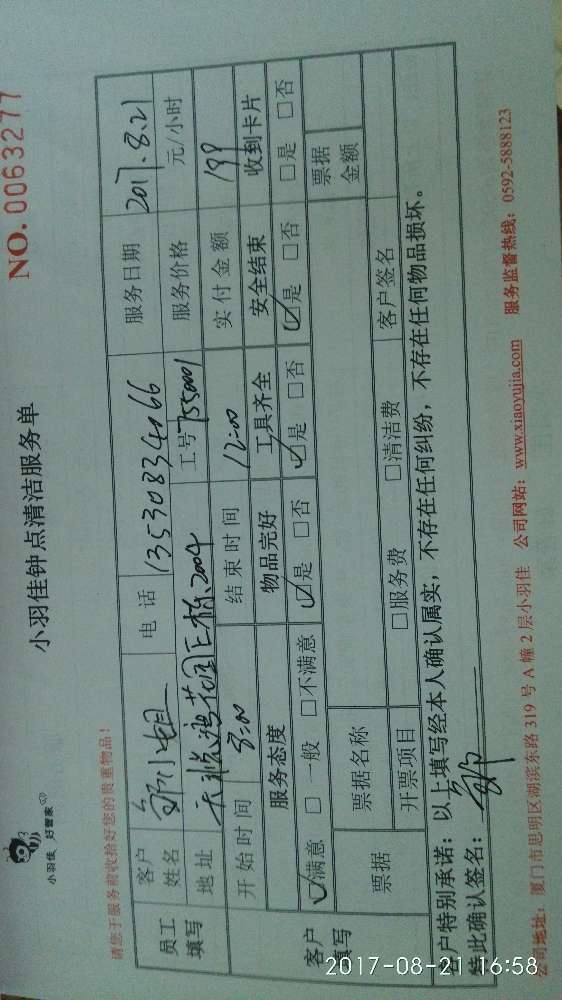 小羽佳 好管家
小羽佳钟点清洁服务单
NO. 0063277
请您于服务前收拾好您的贵重物品!
员工填写 客户姓名 小姐 电话 13530834166 服务日期 2017.8.21
地址 2004 工号 7550001 服务价格 元/小时
客户填写 开始时间 8:00 结束时间 12:00 实付金额 199
服务态度 物品完好 工具齐全 安全结束 收到卡片
☑满意 □一般 □不满意 ☑是 □否 ☑是 □否 ☑是 □否 □是 □否
票据 票据名称 票据金额
开票项目 □服务费 □清洁费 客户签名
客户特别承诺:以上填写经本人确认属实,不存在任何纠纷,不存在任何物品损坏。
特此确认签名:
公司地址:厦门市思明区湖滨东路 319 号 A 幢 2 层小羽佳 公司网站:www.xiaoyujia.com 服务监督热线:0592-5888123
2017-08-21 16:58